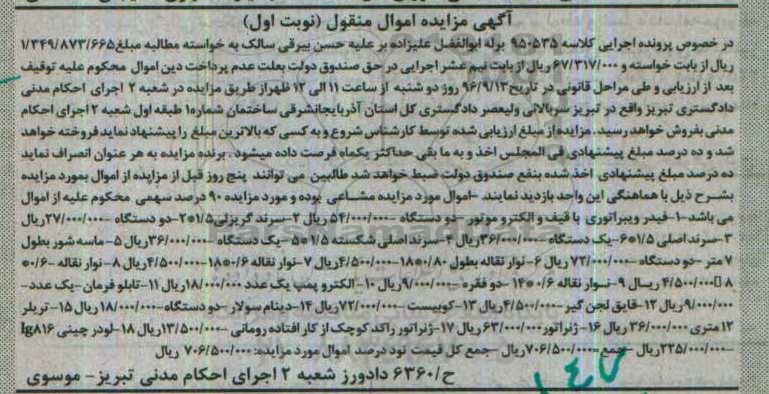 آگهی مزایده اموال منقول (نوبت اول)
در خصوص پرونده اجرایی کلاسه ۹۵۰۵۳۵ برله ابوالفضل علیزاده بر علیه حسن بیرقی سالک به خواسته مطالبه مبلغ ۱/۳۴۹/۸۷۳/۶۶۵
ریال از بابت خواسته و ۶۷/۳۱۷/۰۰۰ ریال از بابت نیم عشر اجرایی در حق صندوق دولت بعلت عدم پرداخت دین اموال محکوم علیه توقیف
بعد از ارزیابی و طی مراحل قانونی در تاریخ ۹۶/۹/۱۳ روز دو شنبه از ساعت ۱۱ الی ۱۲ ظهر از طریق مزایده در شعبه ۲ اجرای احکام مدنی
دادگستری تبریز واقع در تبریز سربالائی ولیعصر دادگستری کل استان آذربایجانشرقی ساختمان شماره۱ طبقه اول شعبه ۲ اجرای احکام
مدنی بفروش خواهد رسید. مزایده از مبلغ ارزیابی شده توسط کارشناس شروع و به کسی که بالاترین مبلغ را پیشنهاد نماید فروخته خواهد
شد و ده درصد مبلغ پیشنهادی فی المجلس اخذ و به ما بقی حداکثر یکماه فرصت داده میشود. برنده مزایده به هر عنوان انصراف نماید
ده درصد مبلغ پیشنهادی اخذ شده بنفع صندوق دولت ضبط خواهد شد طالبین می توانند پنج روز قبل از مزایده از اموال بمورد مزایده
بشرح ذیل با هماهنگی این واحد بازدید نمایند. -اموال مورد مزایده مشاعی بوده و مورد مزایده ۹۰ درصد سهمی محکوم علیه از اموال
می باشد-۱-فیدر ویبراتوری با قیف و الکترو موتور -دو دستگاه -۵۴/۰۰۰/۰۰۰ ریال ۲-سرند گریزلی ۱/۵*۲-دو دستگاه -۲۷/۰۰۰/۰۰۰ریال
۳-سرند اصلی ۱/۵*۶-یک دستگاه -۳۶/۰۰۰/۰۰۰ریال ۴-سرند اصلی شکسته ۱/۵*۵-یک دستگاه -۳۶/۰۰۰/۰۰۰ریال ۵-ماسه شور بطول
۷ متر -دو دستگاه -۷۲/۰۰۰/۰۰۰ ریال ۶-نوار نقاله بطول ۰/۸۰*۱۸-۴/۵۰۰/۰۰۰ریال ۷-نوار نقاله ۰/۶*۱۸-۴/۵۰۰/۰۰۰ریال ۸-نوار نقاله -۰/۶*
۸ ۴/۵۰۰/۰۰۰ ریال ۹-نوار نقاله ۰/۶*۱۴ -دو فقره -۹/۰۰۰/۰۰۰ریال ۱۰-الکترو پمپ یک عدد ۱۸/۰۰۰/۰۰۰ریال ۱۱-تابلو فرمان -یک عدد-
۹/۰۰۰/۰۰۰ریال ۱۲-قایق لجن گیر -۴/۵۰۰/۰۰۰ریال ۱۳-کوبیست -۷۲/۰۰۰/۰۰۰ریال ۱۴-دینام سولار -دو دستگاه-۱۸/۰۰۰/۰۰۰ریال ۱۵-تریلر
۱۲ متری ۳۶/۰۰۰/۰۰۰ ریال ۱۶-ژنراتور ۶۳/۰۰۰/۰۰۰ریال ۱۷-ژنراتور راکد کوچک از کار افتاده رومانی -۱۳/۵۰۰/۰۰۰ریال ۱۸-لودر چینی lg۸۱۶
-۲۲۵/۰۰۰/۰۰۰ریال -جمع-۷۰۶/۵۰۰/۰۰۰ریال -جمع کل قیمت نود درصد اموال مورد مزایده: ۷۰۶/۵۰۰/۰۰۰ ریال
ح/۶۳۶۰ دادورز شعبه ۲ اجرای احکام مدنی تبریز- موسوی